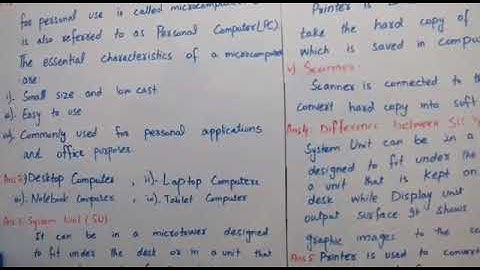 for personal use is called microcomputer
is also referred to as Personal Computer(PC).
The essential characteristics of a microcomputer
are:
i). Small size and low cast
ii). Easy to use
iii). Commonly used for personal applications
and office purposes
Ans2)Desktop Computer , ii)- Laptop Computers
iii). Notebook Computer , iv). Tablet Computer
Ans3 System Unit (SU)
It can be in a microtower designed
to fit under the desk or in a unit that
Printer is
take the hard copy of
which is saved in compu
v) Scanner:
Scanner is connected to th
convert hard copy into soft
Ans4: Difference between
System Unit can be in a
designed to fit under the
a unit that is kept on
desk while Display unit
output surface. It shows
graphic images to the
Ans5 Printer is used to convert